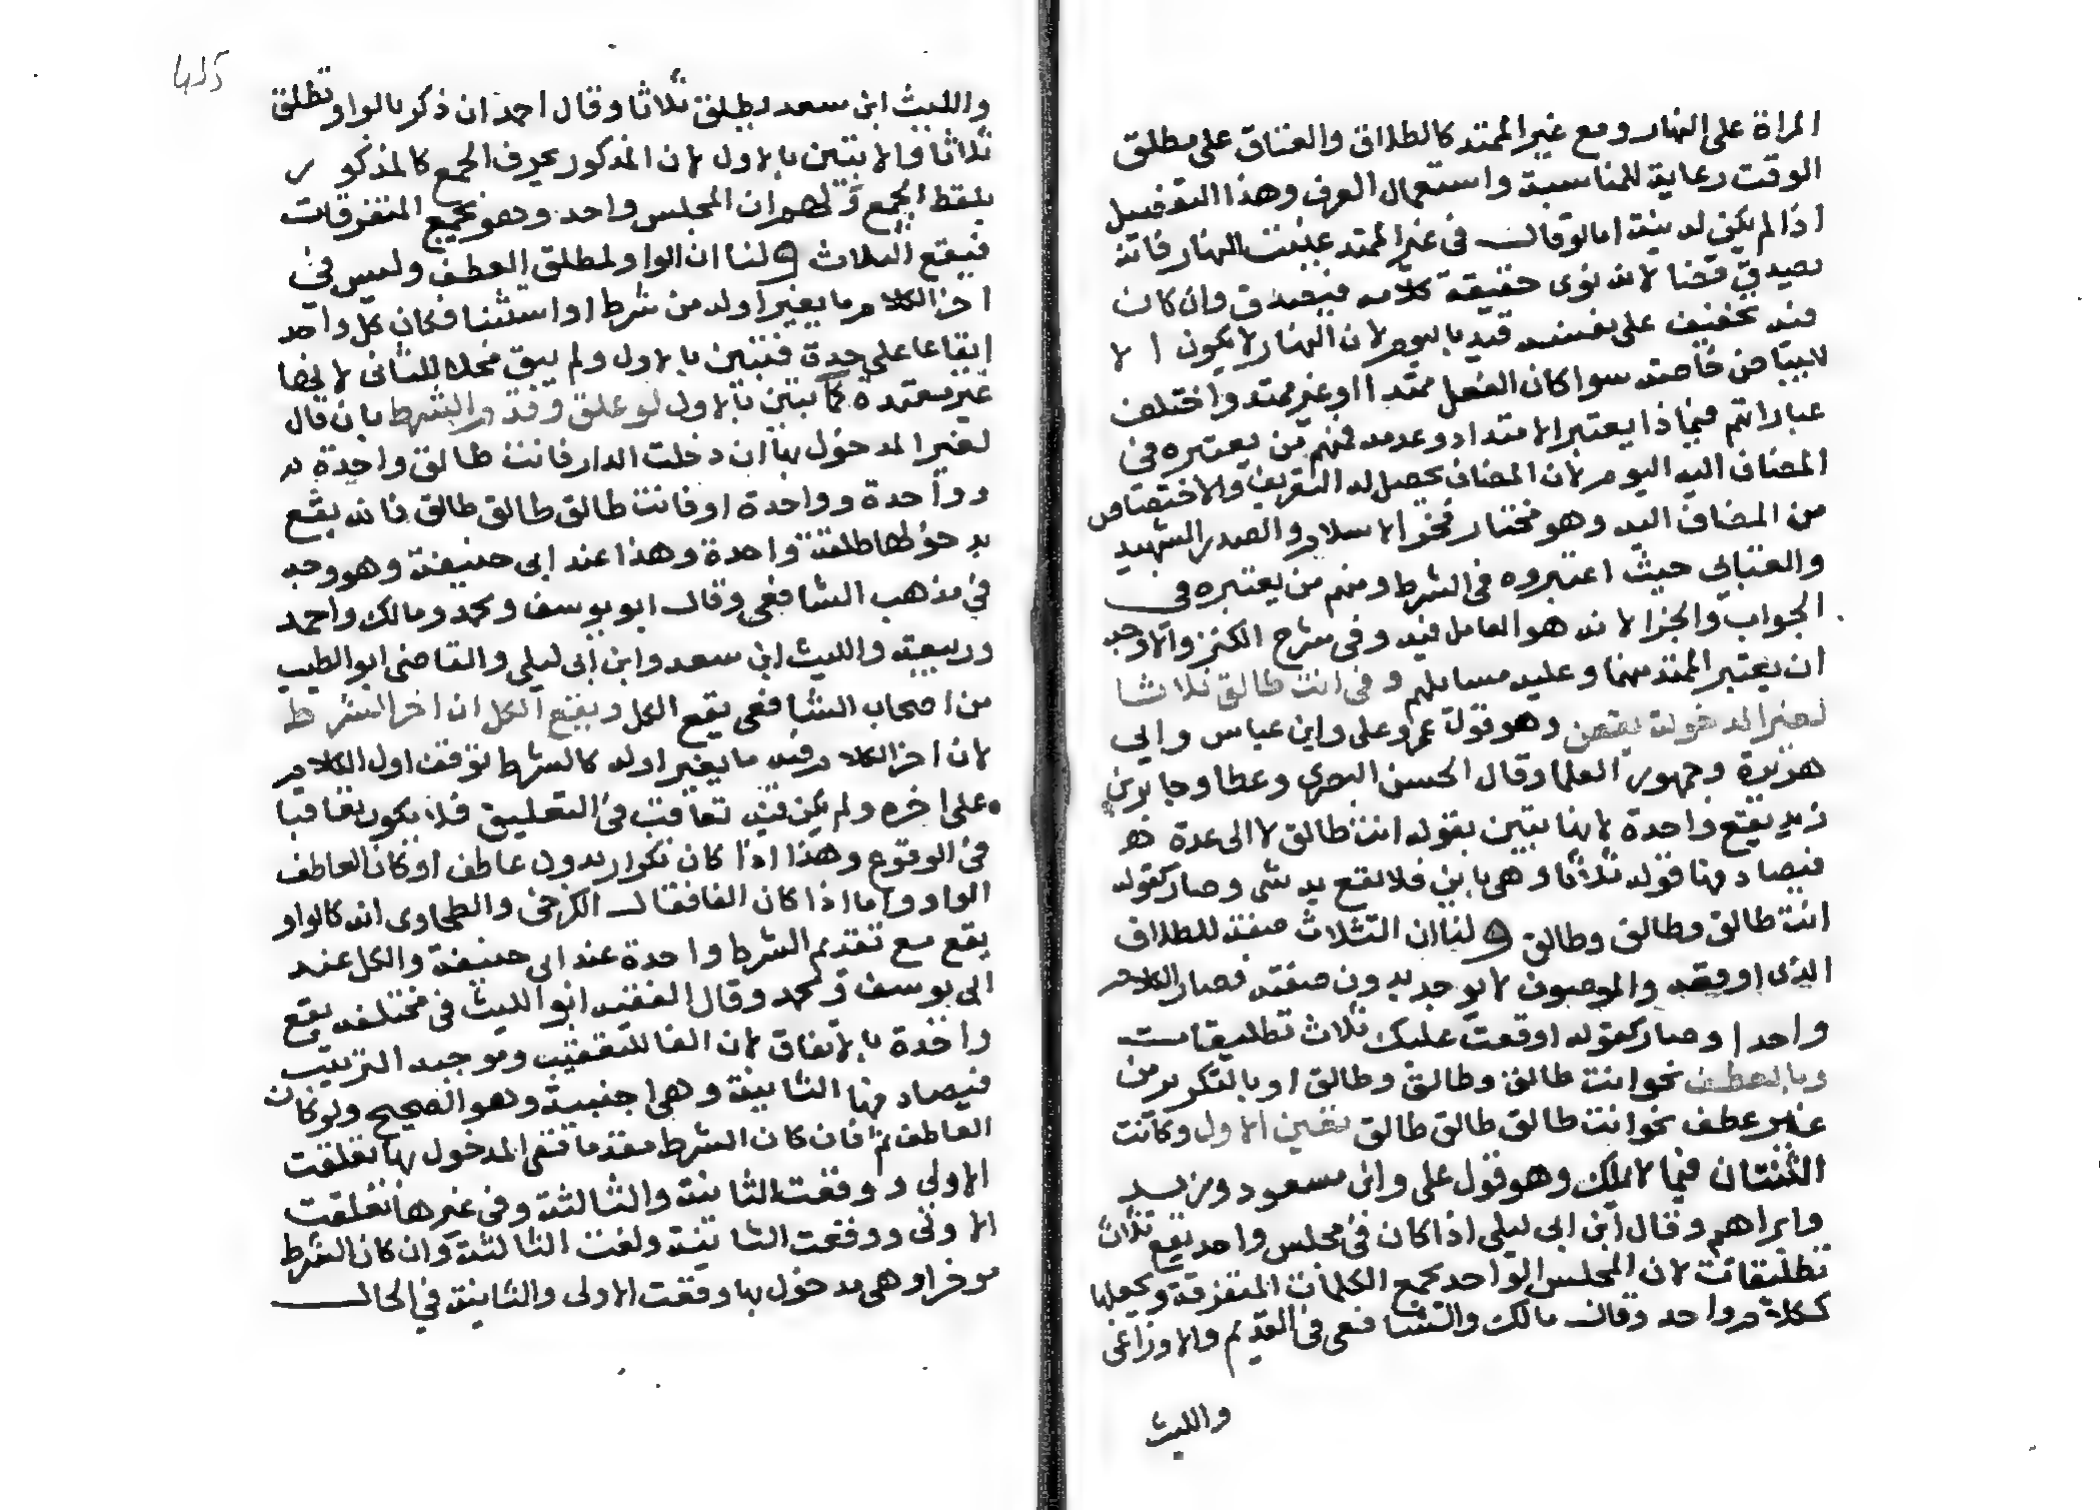 المراة على النهار ومع غير الممتد كالطلاق والعتاق على مطلق
الوقت رعاية للمناسبة واستعمال العرف وهذا التفضيل
اذا لم يكن له نية اما لو قال في غير الممتد عنيت النهار فانه
يصدق قضا لانه نوى حقيقة كلامه فيصدق وان كان
فيه تخفيف على نفسه قيد باليوم لان النهار لا يكون الا
للبياض خاصة سوا كان الفعل ممتدا او غير ممتد واختلف
عباراتهم فيما ذا يعتبر الامتداد وعدمه فمنهم من يعتبره في
المضاف اليه اليوم لان المضاف يحصل له التعريف والاختصاص
من المضاف اليه وهو مختار فخر الاسلام والصدر الشهيد
والعتابي حيث اعتبروه في الشرط ومنهم من يعتبره في
الجواب والجزا لانه هو العامل فيه وفي شرح الكنز والاوجه
ان يعتبر الممتد منهما وعليه مسايلهم وفي انت طالق ثلاثا
لغير المدخولة يقعن وهو قول عمر وعلى وابن عباس وابي
هريرة وجمهور العلما وقال الحسن البصري وعطا وجابر بن
زيد يقع واحدة لانها تبين بقوله انت طالق لا الى عدة
فيصادفها قوله ثلاثا وهي باين فلا يقع به شى وصار كقوله
انت طالق وطالق وطالق ولنا ان الثلاث صفة للطلاق
الذي اوقعه والموصوف لا يوجد بدون صفته فصار الكلام
واحدا وصار كقوله اوقعت عليك ثلاث تطليقات
وبالعطف نحو انت طالق وطالق وطالق او بالتكرير من
غير عطف نحو انت طالق طالق طالق تقين الاول وكانت
الثنتان فيما لا يملك وهو قول على وابن مسعود وزيد
وابراهيم وقال ابن ابى ليلى اذا كان في مجلس واحد يقع ثلاث
تطليقات لان المجلس الواحد يجمع الكلمات المتفرقة ويجعلها
ككلام واحد وقال مالك والشافعى في القديم والاوزاعى
والليث
435
والليث ابن سعد يطلق ثلاثا وقال احمد ان ذكر بالواو تطلق
ثلاثا والا بتين بالاول لان المذكور بحرف الجمع كالمذكور
بلفظ الجمع ولهم ان المجلس واحد وهو يجمع المتفرقات
فيقع الثلاث ولنا ان الواو لمطلق العطف وليس في
اخر الكلام ما يغير اوله من شرط او استثنا فكان كل واحد
ايقاعا على حدة فتبين بالاول ولم يبق محلا للثانى لانها
غير معتدة كما تبين بالاول لو علق وقدم الشرط بان قال
لغير المدخول بها ان دخلت الدار فانت طالق واحدة
وواحدة وواحدة او فانت طالق طالق طالق فانه يقع
بدخولها طلقة واحدة وهذا عند ابى حنيفة وهو وجه
في مذهب الشافعى وقال ابو يوسف ومحمد ومالك واحمد
وربيعة والليث ابن سعد وابن ابى ليلى والقاضى ابو الطيب
من اصحاب الشافعى يقع الكل ويقع الكل ان اخر الشرط
لان اخر الكلام فيه ما يغير اوله كالشرط توقف اول الكلام
على اخره ولم يكن فيه تعاقب في التعليق فلا يكون تعاقبا
في الوقوع وهذا اذا كان تكرار بدون عاطف او كان العاطف
الواو واما اذا كان الفا فقال الكرخى والطحاوى انه كالواو
يقع مع تقديم الشرط واحدة عند ابى حنيفة والكل عند
ابى يوسف ومحمد وقال الفقيه ابو الليث في مختلفه يقع
واحدة بالاتفاق لان الفا للتعقيب وموجبه الترتيب
فيصادفها الثانية وهى اجنبية وهو الصحيح ولو كان
العاطف ثم فان كان الشرط مقدما ففي المدخول بها تعلقت
الاولى ووقعت الثانية والثالثة وفي غيرها تعلقت
الاولى ووقعت الثانية ولغت الثالثة وان كان الشرط
موخرا وهى مدخول بها وقعت الاولى والثانية في الحال